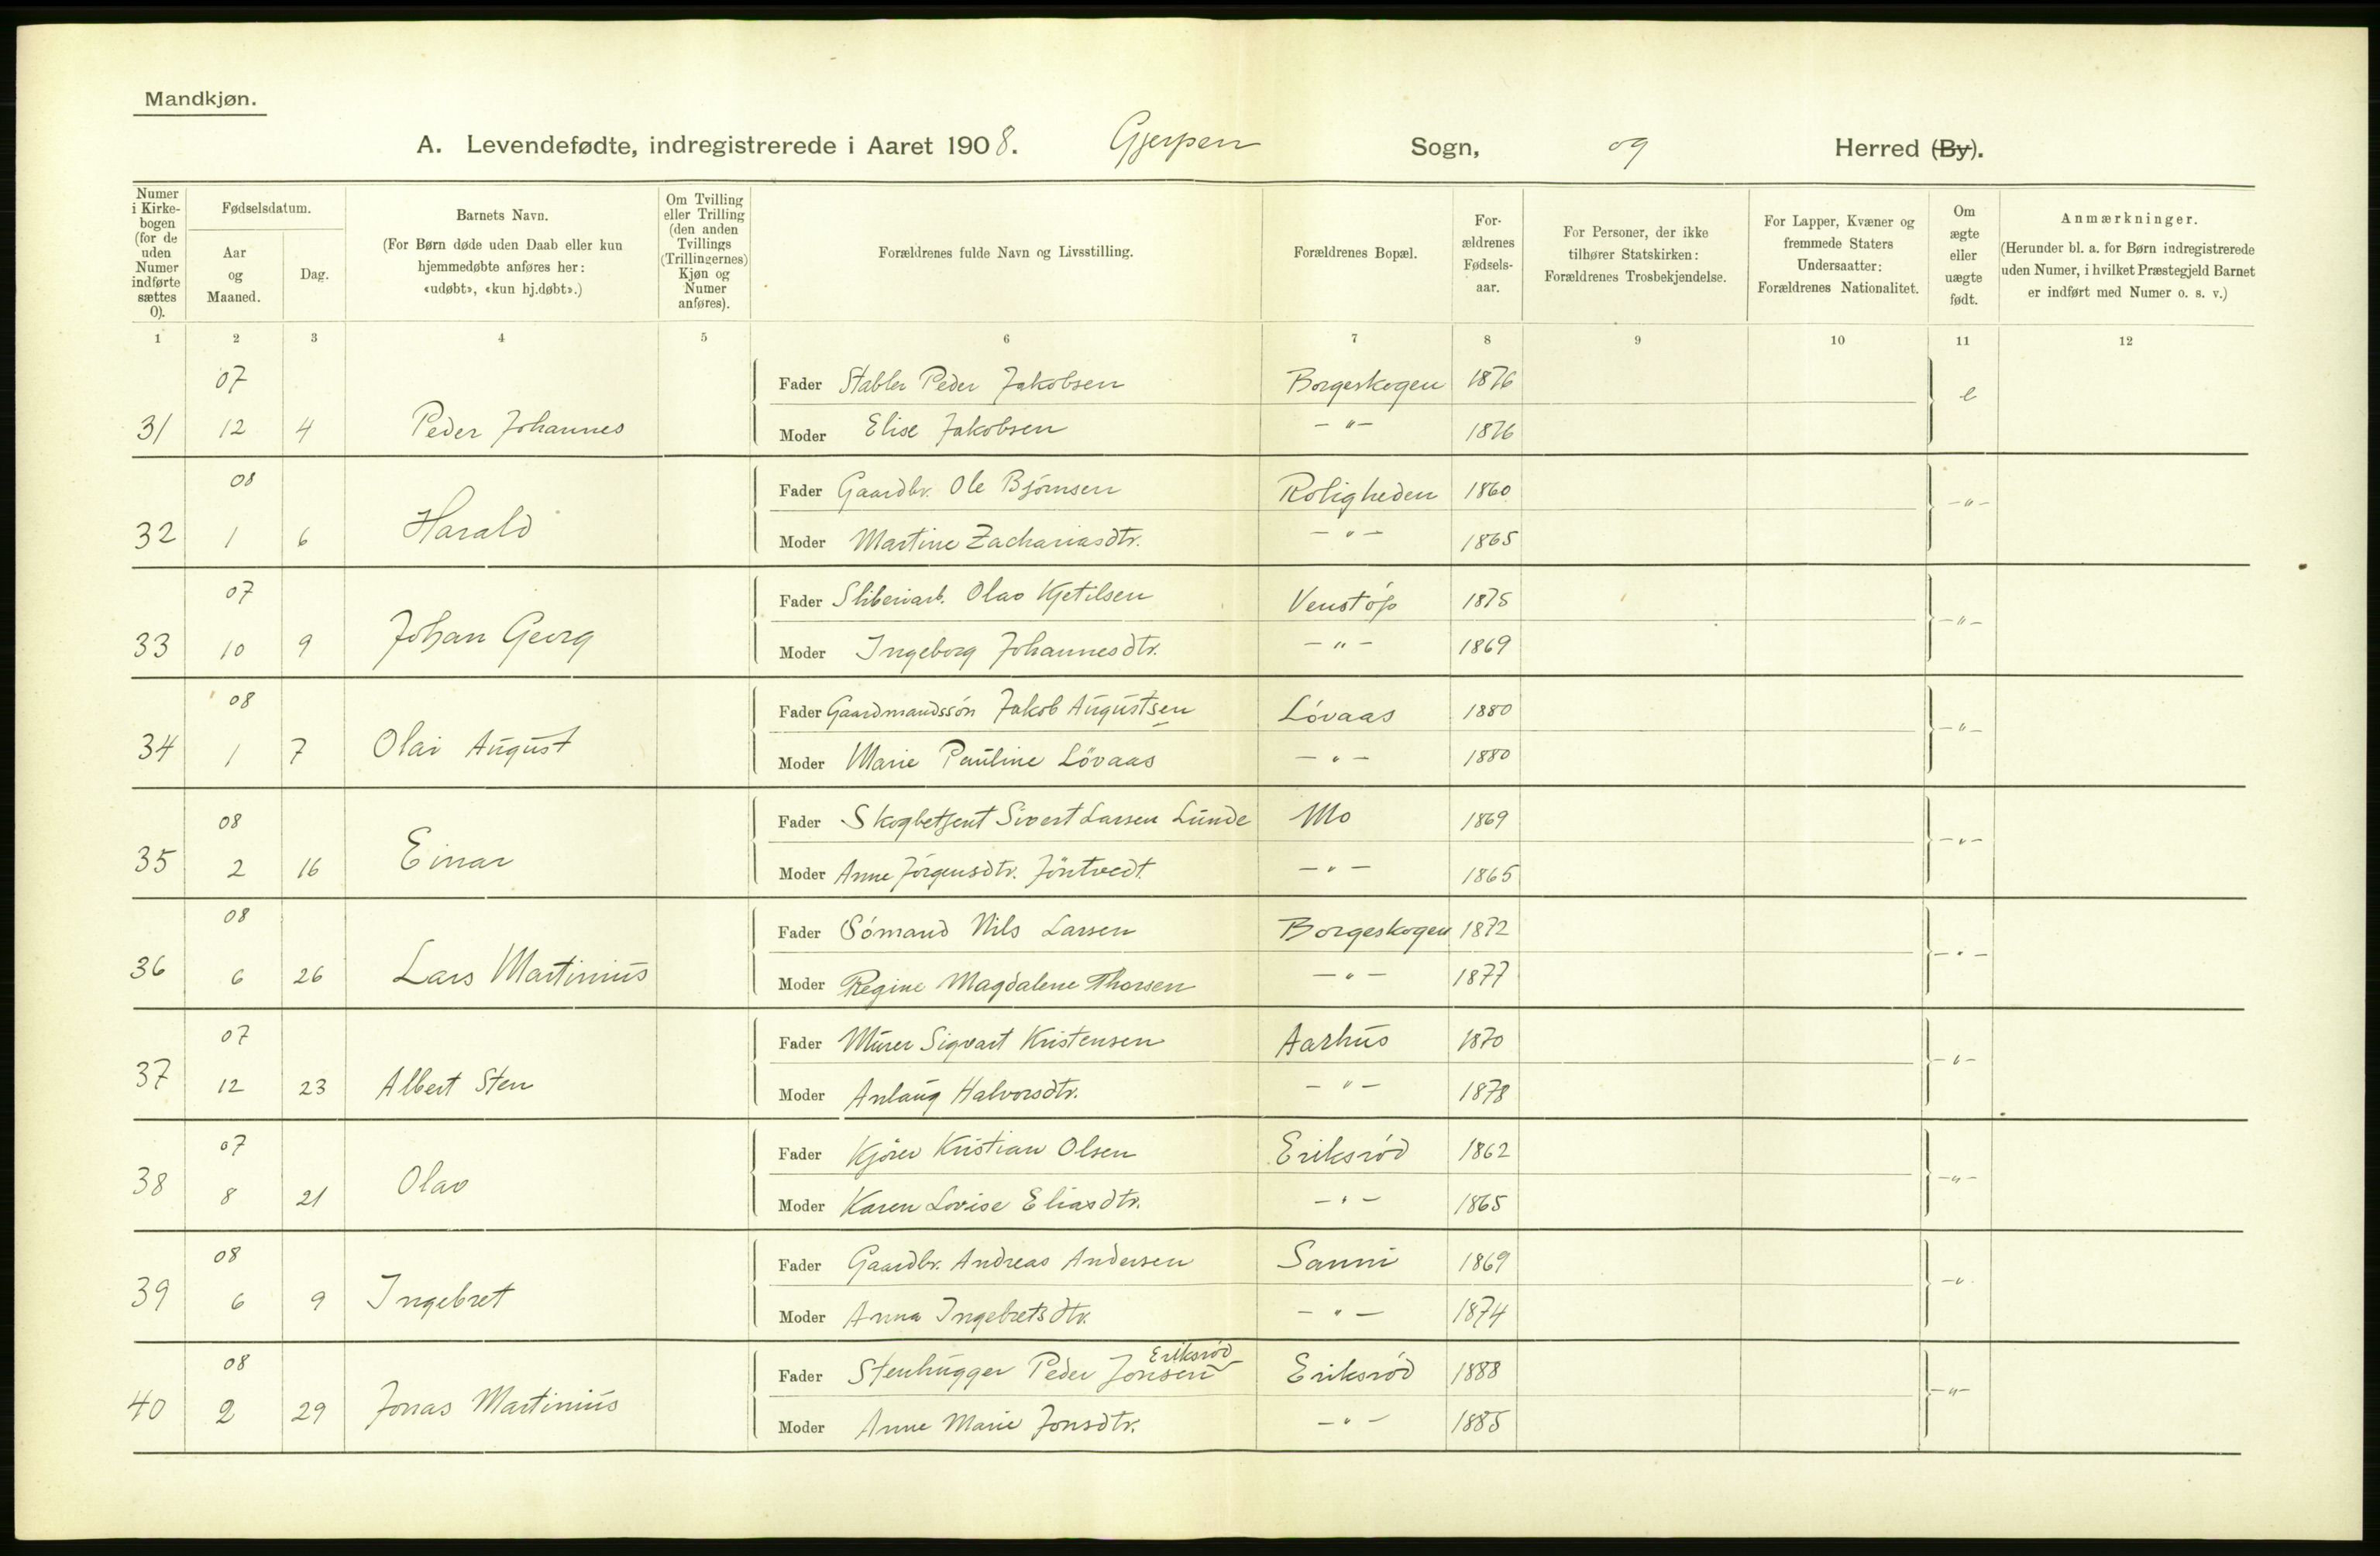 Mandkjøn.
A. Levendefødte, indregistrerede i Aaret 1908. Gjerpen Sogn, og Herred (By).
Numer i Kirkebogen (for de uden Numer indførte sættes 0).
Fødselsdatum.
Aar og Maaned.
Dag.
Barnets Navn.
(For Børn døde uden Daab eller kun hjemmedøbte anføres her: «udøbt», «kun hj.døbt».)
Om Tvilling eller Trilling (den anden Tvillings (Trillingernes) Kjøn og Numer anføres).
Forældrenes fulde Navn og Livsstilling.
Forældrenes Bopæl.
Forældrenes Fødselsaar.
For Personer, der ikke tilhører Statskirken: Forældrenes Trosbekjendelse.
For Lapper, Kvæner og fremmede Staters Undersaatter: Forældrenes Nationalitet.
Om ægte eller uægte født.
Anmærkninger.
(Herunder bl. a. for Børn indregistrerede uden Numer, i hvilket Præstegjeld Barnet er indført med Numer o. s. v.)
1 2 3 4 5 6 7 8 9 10 11 12
07 Fader Stabler Peder Jakobsen Borgeskogen 1876 e
31 12 4 Peder Johannes Moder Elise Jakobsen — " — 1876
08 Fader Gaardbr. Ole Björnsen Roligheden 1860 — " —
32 1 6 Harald Moder Martine Zachariasdtr. — " — 1865
07 Fader Sliberiarb. Olav Kjetilsen Venstöp 1875 — " —
33 10 9 Johan Georg Moder Ingeborg Johannesdtr. — " — 1869
08 Fader Gaardmandssön Jakob Augustsen Lövaas 1880 — " —
34 1 7 Olai August Moder Marie Pauline Lövaas — " — 1880
08 Fader Skogbetjent Sivert Larsen Lunde Mo 1869 — " —
35 2 16 Einar Moder Anne Jörgensdtr. Jöntvedt — " — 1865
08 Fader Sömand Nils Larsen Borgeskogen 1872 — " —
36 6 26 Lars Martinius Moder Regine Magdalene Thorsen — " — 1877
07 Fader Murer Sigvart Kristensen Aarhus 1870 — " —
37 12 23 Albert Sten Moder Anlaug Halvorsdtr. — " — 1878
07 Fader Kjörer Kristian Olsen Eriksröd 1862 — " —
38 8 21 Olav Moder Karen Lovise Eliasdtr. — " — 1865
08 Fader Gaardbr. Andreas Andersen Sanni 1869 — "
39 6 9 Ingebret Moder Anna Ingebretsdtr. — " — 1874
08 Fader Stenhugger Peder Jonsen Eriksröd Eriksröd 1888 — " —
40 2 29 Jonas Martinius Moder Anne Marie Jonsdtr. — " — 1885